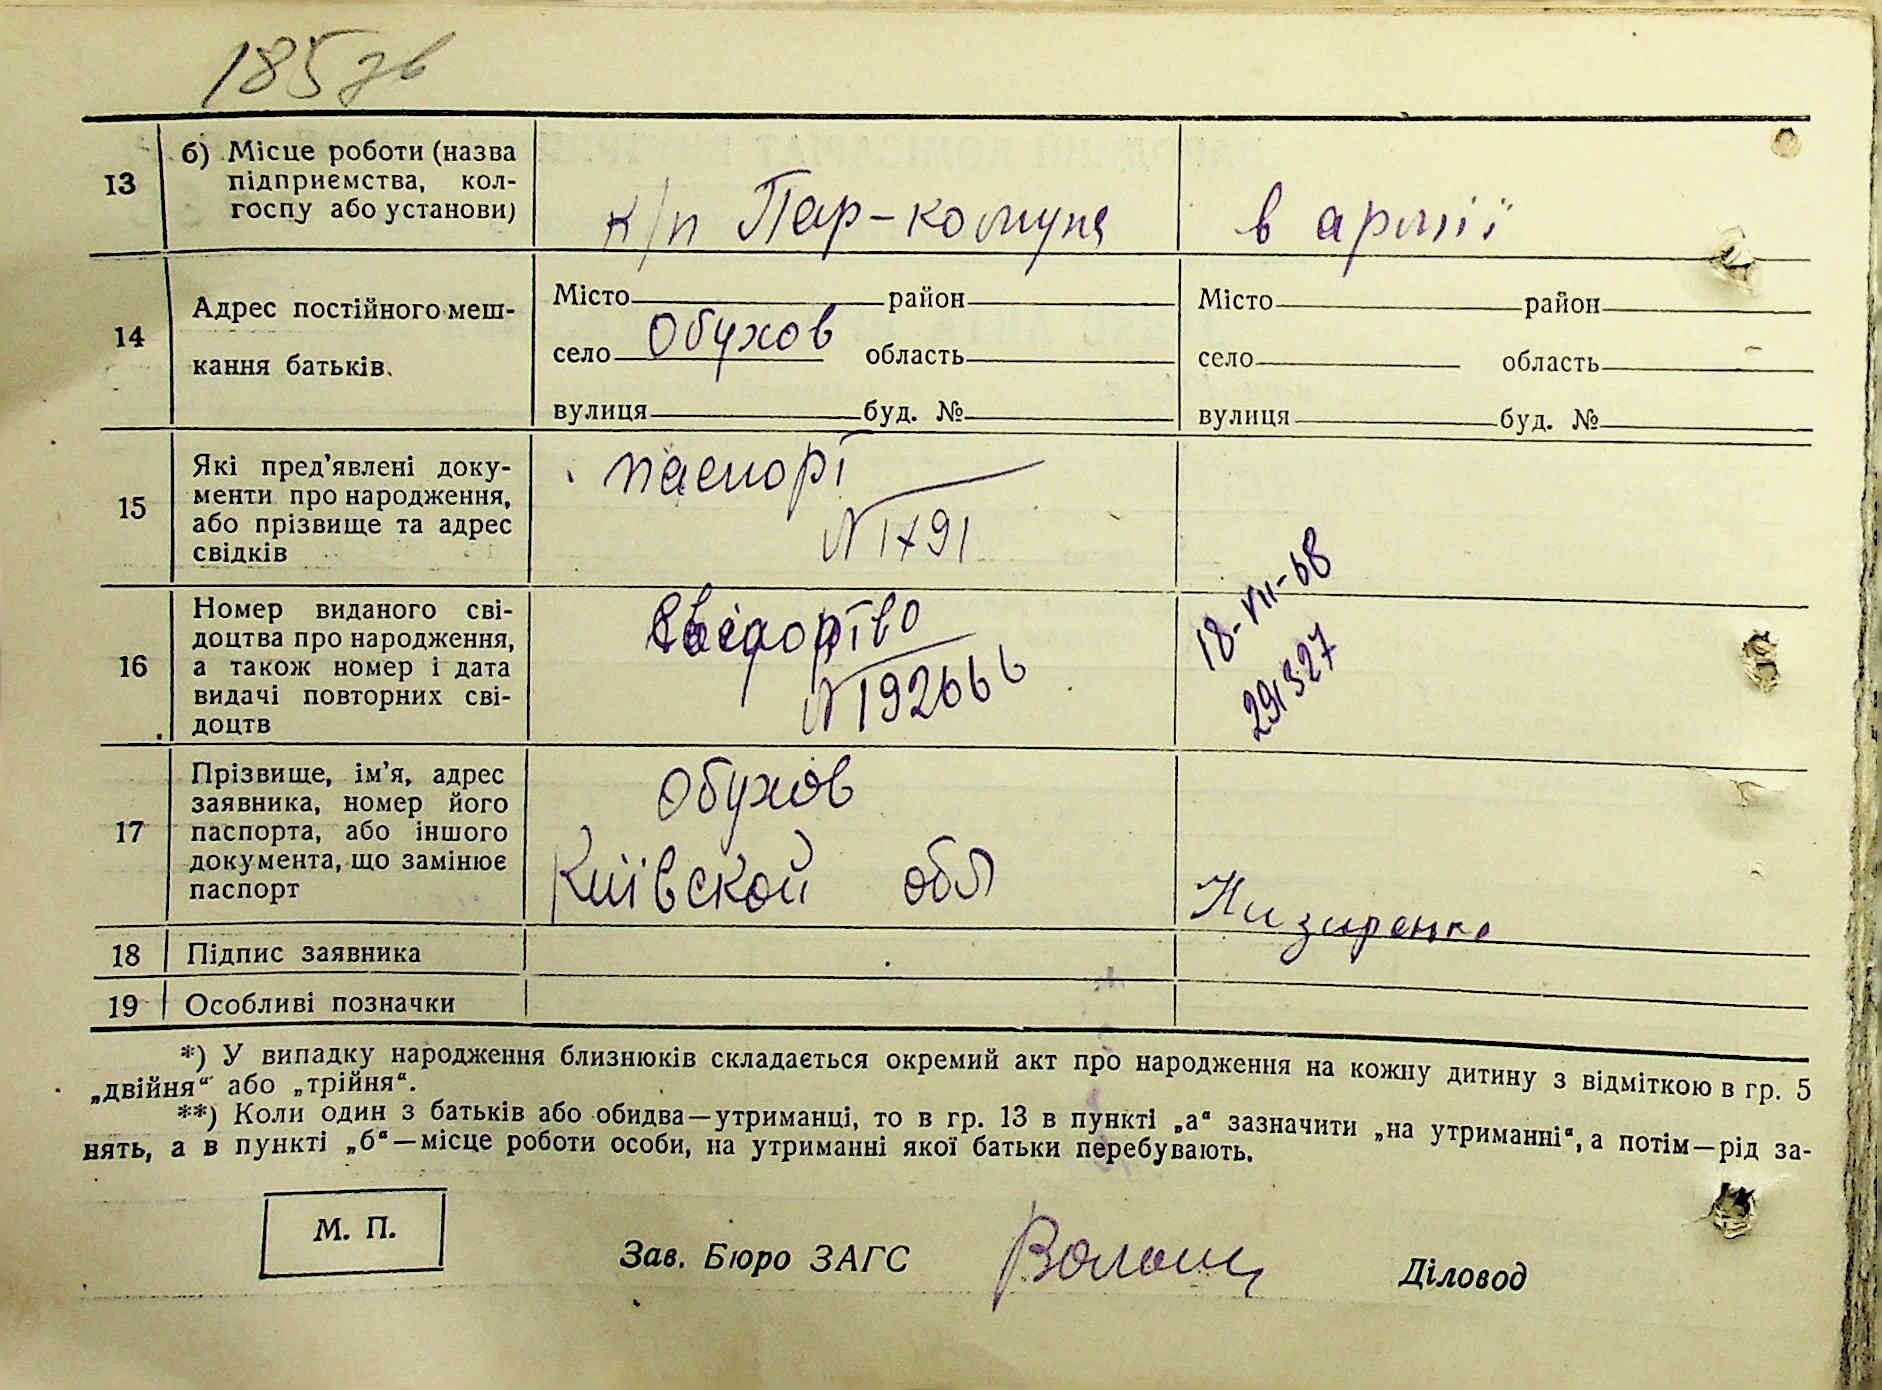 185 зв
13
б) Місце роботи (назва
підприємства, кол-
госпу або установи)
к/п Пар-комуна
в армії
14
Адрес постійного меш-
кання батьків.
Місто район
село Обухов область
вулиця буд. №
Місто район
село область
вулиця буд. №
15
Які пред'явлені доку-
менти про народження,
або прізвище та адрес
свідків
паспорт
N 1791
16
Номер виданого сві-
доцтва про народження,
а також номер і дата
видачі повторних сві-
доцтв
N 192666
18-VII-68
291327
17
Прізвище, ім'я, адрес
заявника, номер його
паспорта, або іншого
документа, що замінює
паспорт
Обухов
Київской обл
18
Підпис заявника
19
Особливі позначки
*) У випадку народження близнюків складається окремий акт про народження на кожну дитину з відміткою в гр. 5
„двійня“ або „трійня“.
**) Коли один з батьків або обидва—утриманці, то в гр. 13 в пункті „а“ зазначити „на утриманні“, а потім—рід за-
нять, а в пункті „б“—місце роботи особи, на утриманні якої батьки перебувають.
М. П.
Зав. Бюро ЗАГС
Діловод